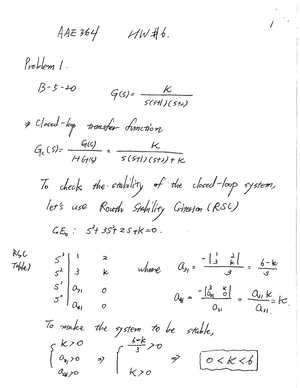 1
AAE 364 HW#6.
Problem 1.
B-5-20 G(s) = K / s(s+1)(s+2)
⇒ Closed-loop transfer function
Gc(s) = G(s) / 1+G(s) = K / s(s+1)(s+2)+K
To check the stability of the closed-loop system,
let's use Routh Stability Criterion (RSC)
CE: s³+3s²+2s+K=0.
RSC Table)
s³ 1 2
s² 3 K
s¹ a31 0
s⁰ a41 0
where a31 = -|1 2; 3 K| / 3 = 6-K / 3
a41 = -|3 K; a31 0| / a31 = a31 K / a31 = K.
To make the system to be stable,
{ K>0 a31>0 a41>0 ⇒ { 6-K / 3 >0 K>0 ⇒ 0<K<6